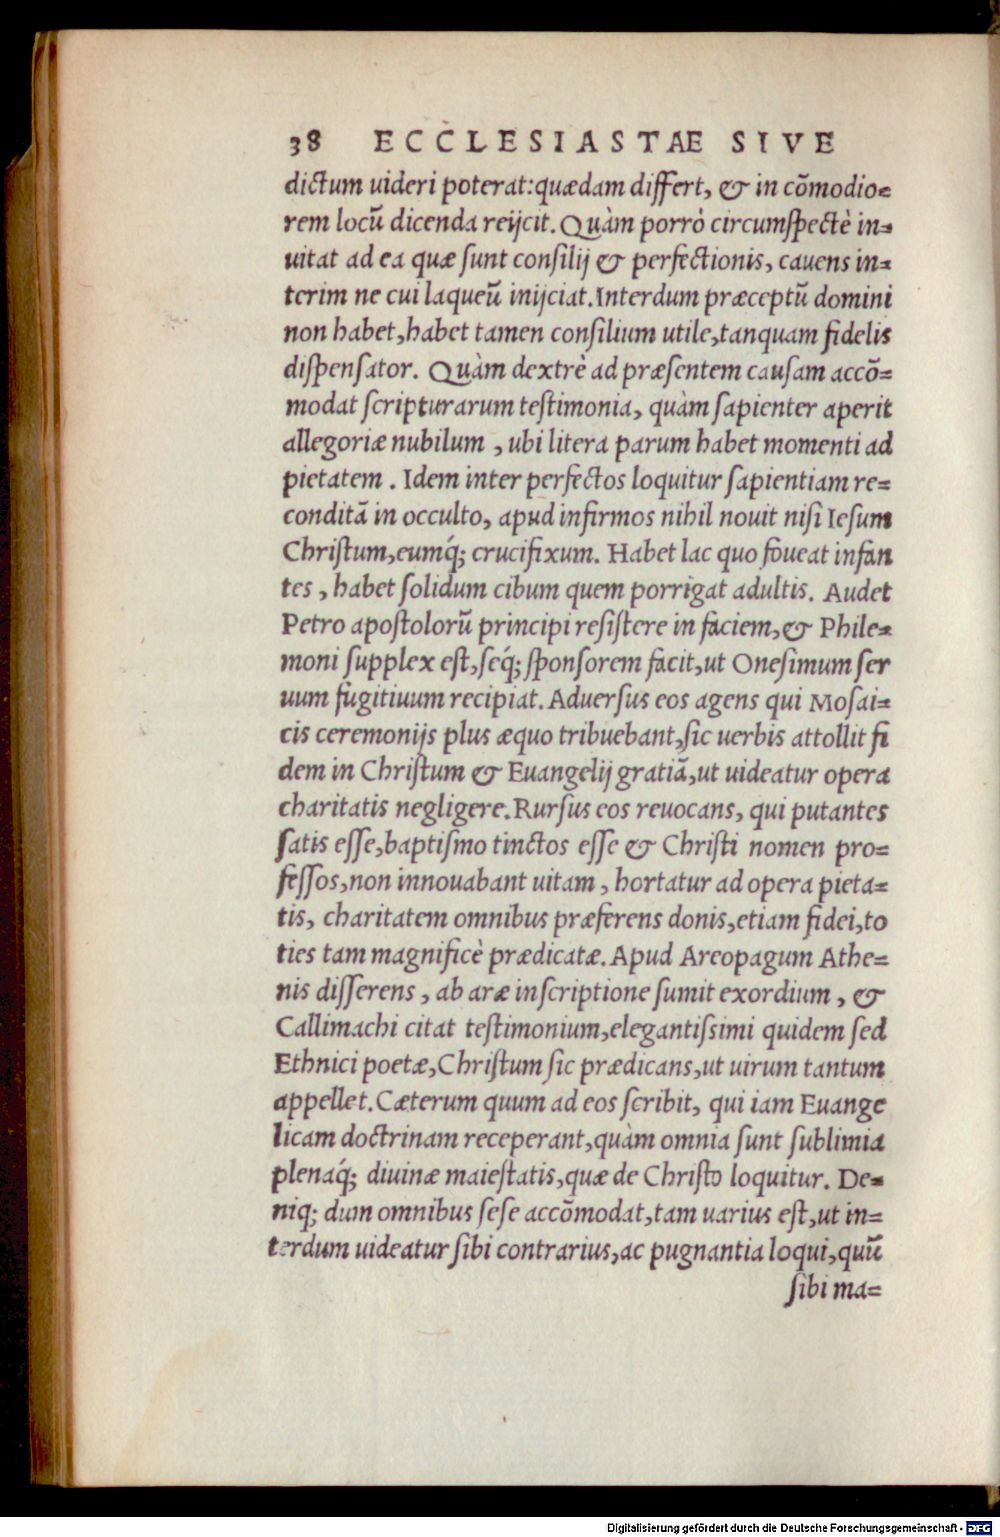 38 ECCLESIASTAE SIVE
dictum uideri poterat:quædam differt, & in cõmodio=
rem locũ dicenda reijcit. Quàm porrò circumſpectè in=
uitat ad ea quæ ſunt conſilij & perfectionis, cauens in=
terim ne cui laqueũ inijciat.Interdum præceptũ domini
non habet,habet tamen conſilium utile,tanquam fidelis
diſpenſator. Quàm dextrè ad præſentem cauſam accõ=
modat ſcripturarum teſtimonia, quàm ſapienter aperit
allegoriæ nubilum , ubi litera parum habet momenti ad
pietatem . Idem inter perfectos loquitur ſapientiam re=
conditã in occulto, apud infirmos nihil nouit niſi Ieſum
Chriſtum,eumq́; crucifixum. Habet lac quo foueat infan
tes , habet ſolidum cibum quem porrigat adultis. Audet
Petro apoſtolorũ principi reſiſtere in faciem,& Phile=
moni ſupplex eſt,ſeq́; ſponſorem facit,ut Oneſimum ſer
uum fugitiuum recipiat. Aduerſus eos agens qui Moſai=
cis ceremonijs plus æquo tribuebant,ſic uerbis attollit fi
dem in Chriſtum & Euangelij gratiã,ut uideatur opera
charitatis negligere.Rurſus eos reuocans, qui putantes
ſatis eſſe,baptiſmo tinctos eſſe & Chriſti nomen pro=
feſſos,non innouabant uitam , hortatur ad opera pieta=
tis, charitatem omnibus præferens donis,etiam fidei,to
ties tam magnificè prædicatæ. Apud Areopagum Athe=
nis diſſerens , ab aræ inſcriptione ſumit exordium , &
Callimachi citat teſtimonium,elegantiſsimi quidem ſed
Ethnici poetæ,Chriſtum ſic prædicans,ut uirum tantum
appellet.Cæterum quum ad eos ſcribit, qui iam Euange
licam doctrinam receperant,quàm omnia ſunt ſublimia
plenaq́; diuinæ maieſtatis,quæ de Chriſto loquitur. De=
niq; dum omnibus ſeſe accõmodat,tam uarius eſt,ut in=
terdum uideatur ſibi contrarius,ac pugnantia loqui,quũ
ſibi ma=
Digitalisierung gefördert durch die Deutsche Forschungsgemeinschaft - DFG